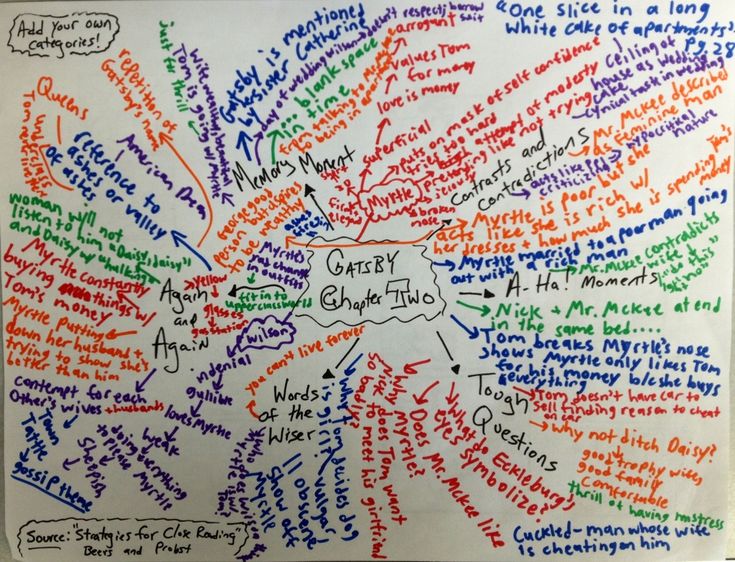 Add your own
categories!
"One slice in a long
white cake of apartments"
Pg. 28
repetition of
Gatsby's name
Just for thrill
Tom is going w/ Myrtle
Gatsby is mentioned
by sister Catherine
... blank space
in time
from talking to
to being in
Memory Moment
arrogant
values Tom
for money
love is money
superficial
puts on mask of self confidence
tries too hard
attempt of modesty
pretending like not trying
Myrtle
broken
nose
ceiling of
house as wedding
cake
cynical task in wedding
Contrasts and
Contradictions
acts like
criticizing
hypocritical
nature
Mr. McKee described
as feminine man
Myrtle is poor but she
acts like she is rich w/
her dresses + how much she is spending
Tom's
money
Myrtle married to a poor man going
out with a rich man
Mr. McKee contradicts
wife
"do this"
A-Ha! Moments
Nick + Mr. McKee at end
in the same bed....
Tom breaks Myrtle's nose
shows Myrtle only likes Tom
for his money b/c she buys
everything
Tough
Questions
Tom doesn't have car to
sell finding reason to cheat
on car
Why not ditch Daisy?
good trophy wife
good family
Comfortable
thrill of having mistress
Cuckled-man whose wife
is cheating on him
What do Eckleburg's
eyes symbolize?
Does Mr. McKee like
Why Myrtle?
Nick does Tom want
so badly to meet his girlfriend
Words of the
Wiser
you can't live forever
Why Tom decides dog
is girl?
vulgar
obscene
show off
Myrtle
GATSBY
Chapter Two
George good
person but aspires
to be wealthy
Myrtle's
change
in outfits
fit in to
upperclass world
American Dream
Queens
reference to
ashes or valley
of ashes
Woman will not
listen to him "Daisy, daisy"
and Daisy w/ "hulking"
Again
and
Again
yellow
glasses
gas station
Myrtle constantly
buying things w/
Tom's money
Myrtle putting
down her husband +
trying to show she's
better than him
contempt for each
Other's wives + husbands
Town
Tattle
gossip theme
Wilson
in denial
gullible
loves Myrtle
weak
doing everything
to please Myrtle
Sheepish
Source: "Strategies for Close Reading"
Beers and Probst